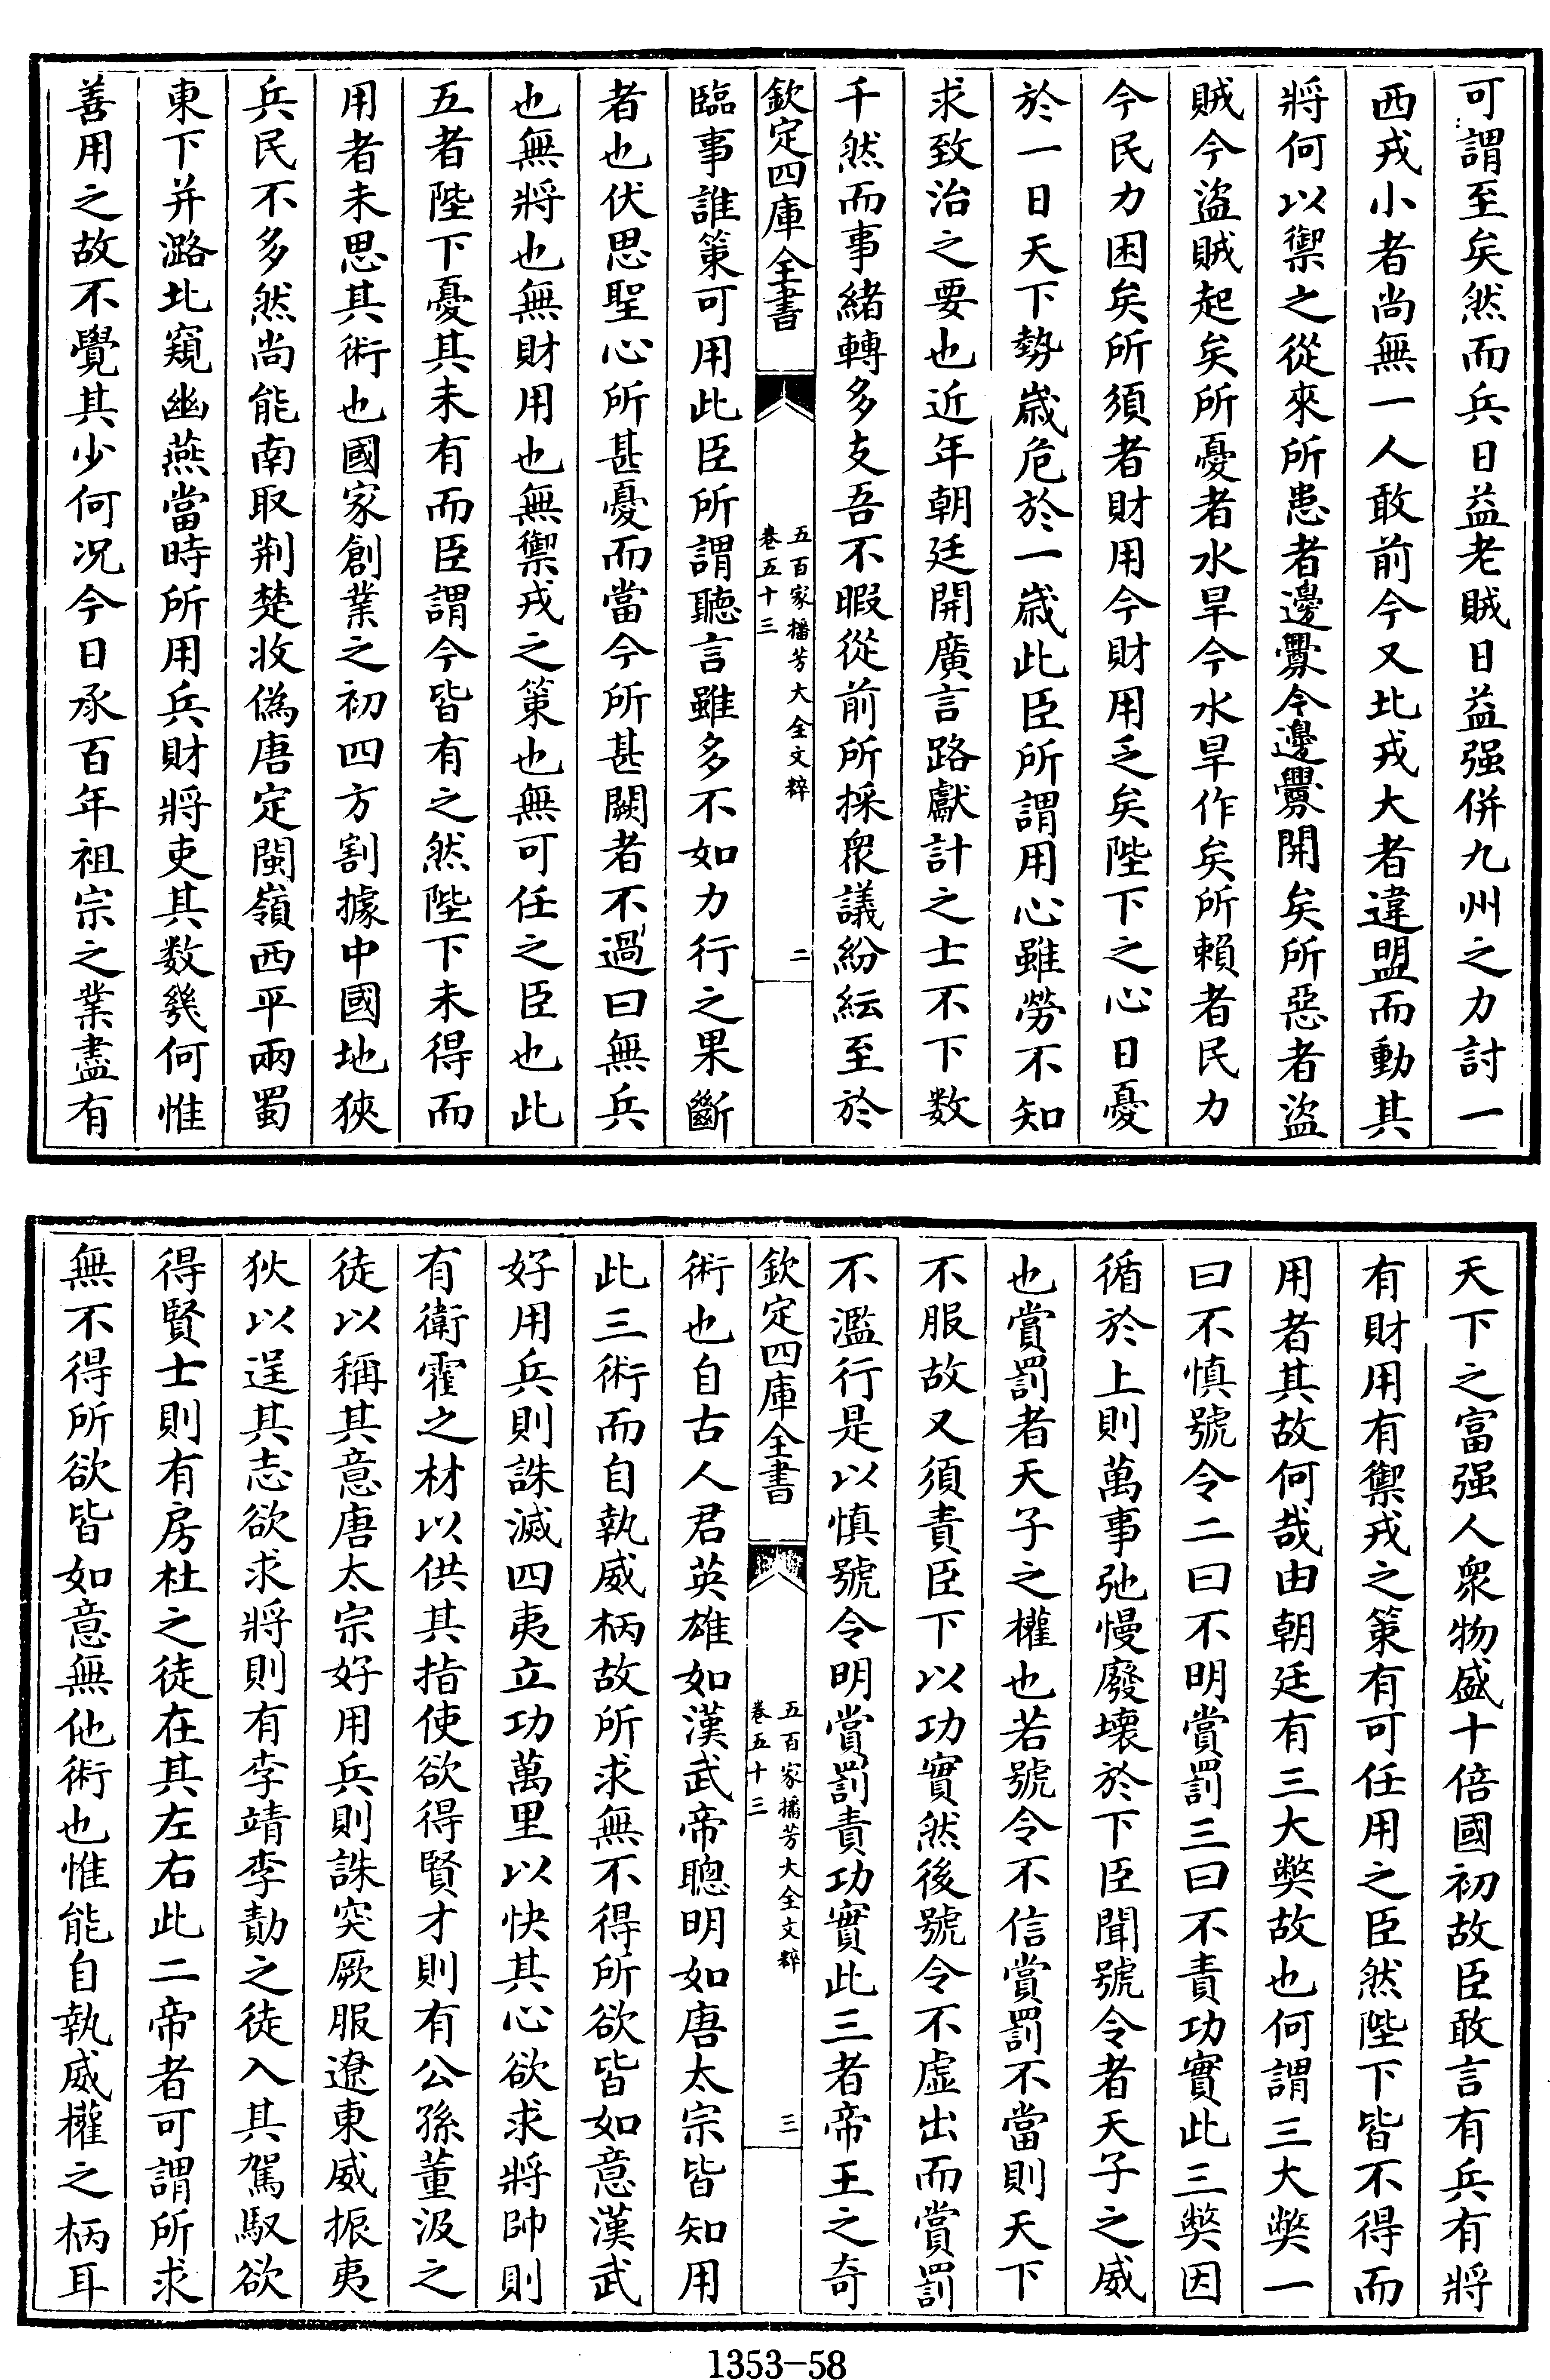 可謂至矣然而兵日益老賊日益强併九州之力討一
西戎小者尚無一人敢前今又北戎大者違盟而動其
將何以禦之從來所患者邊釁今邊釁開矣所惡者盜
賊今盜賊起矣所憂者水旱今水旱作矣所賴者民力
今民力困矣所須者財用今財用乏矣陛下之心日憂
於一日天下勢歲危於一歲此臣所謂用心雖勞不知
求致治之要也近年朝廷開廣言路獻計之士不下数
千然而事緒轉多支吾不暇從前所採衆議紛紜至於
欽定四庫全書
五百家播芳大全文粹
卷五十三
二
臨事誰策可用此臣所謂聽言雖多不如力行之果斷
者也伏思聖心所甚憂而當今所甚闕者不過曰無兵
也無將也無財用也無禦戎之策也無可任之臣也此
五者陛下憂其未有而臣謂今皆有之然陛下未得而
用者未思其術也國家創業之初四方割據中國地狹
兵民不多然尚能南取荆楚收偽唐定閩嶺西平兩蜀
東下并潞北窺幽燕當時所用兵財將吏其数幾何惟
善用之故不覺其少何况今日承百年祖宗之業盡有
天下之富强人衆物盛十倍國初故臣敢言有兵有將
有財用有禦戎之策有可任用之臣然陛下皆不得而
用者其故何哉由朝廷有三大弊故也何謂三大弊一
曰不慎號令二曰不明賞罰三曰不責功實此三弊因
循於上則萬事弛慢廢壞於下臣聞號令者天子之威
也賞罰者天子之權也若號令不信賞罰不當則天下
不服故又須責臣下以功實然後號令不虛出而賞罰
不濫行是以慎號令明賞罰責功實此三者帝王之奇
欽定四庫全書
五百家播芳大全文粹
卷五十三
三
術也自古人君英雄如漢武帝聰明如唐太宗皆知用
此三術而自執威柄故所求無不得所欲皆如意漢武
好用兵則誅滅四夷立功萬里以快其心欲求將帥則
有衛霍之材以供其指使欲得賢才則有公孫董汲之
徒以稱其意唐太宗好用兵則誅突厥服遼東威振夷
狄以逞其志欲求將則有李靖李勣之徒入其駕馭欲
得賢士則有房杜之徒在其左右此二帝者可謂所求
無不得所欲皆如意無他術也惟能自執威權之柄耳
1353-58